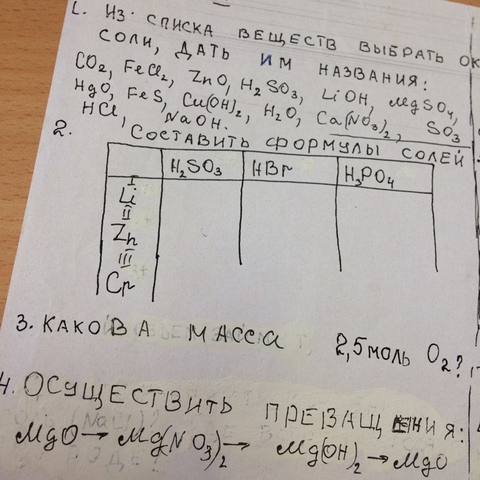 1. ИЗ СПИСКА ВЕЩЕСТВ ВЫБРАТЬ ОК
СОЛИ, ДАТЬ ИМ НАЗВАНИЯ:
CO₂, FeCl₂, ZnO, H₂SO₃, LiOH, MgSO₄,
HgO, FeS, Cu(OH)₂, H₂O, Ca(NO₃)₂, SO₃
HCl, NaOH.
2. СОСТАВИТЬ ФОРМУЛЫ СОЛЕЙ
H₂SO₃ HBr H₃PO₄
I
Li
II
Zn
III
Cr
3. КАКОВА МАССА 2,5 МОЛЬ O₂?
4. ОСУЩЕСТВИТЬ ПРЕВАЩЕНИЯ:
MgO → Mg(NO₃)₂ → Mg(OH)₂ → MgO